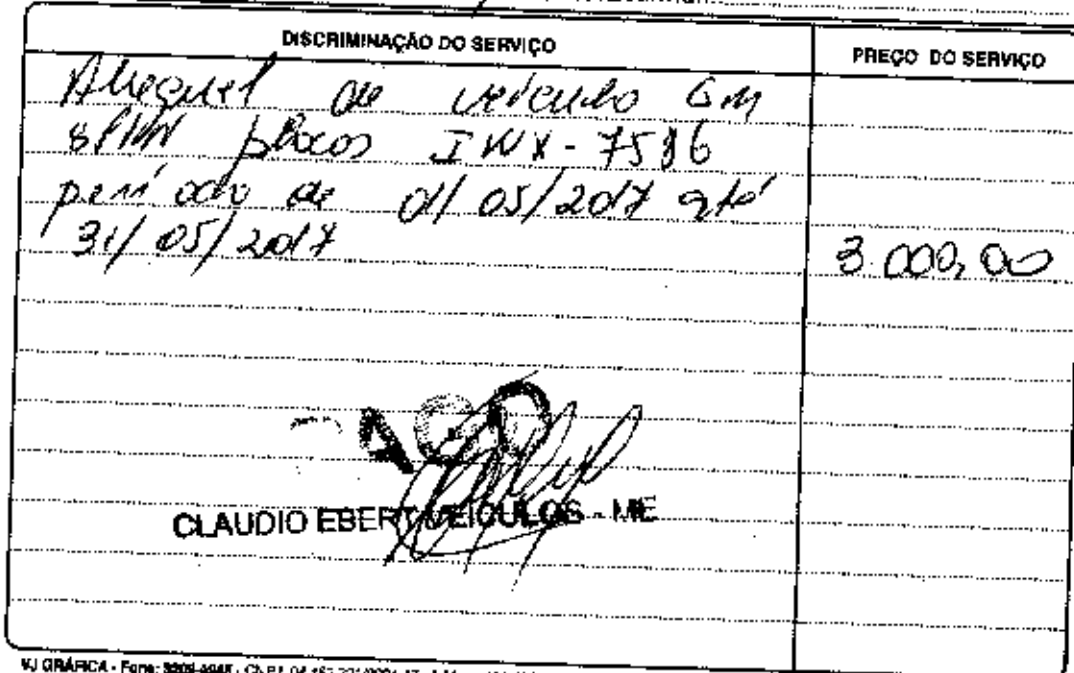 DISCRIMINAÇÃO DO SERVIÇO
PREÇO DO SERVIÇO
Aluguel de veículo GM
SPIN placas IWX-7596
período de 01/05/2017 até
31/05/2017
3.000,00
CLAUDIO EBERT VEICULOS - ME
VJ GRÁFICA - Fone: